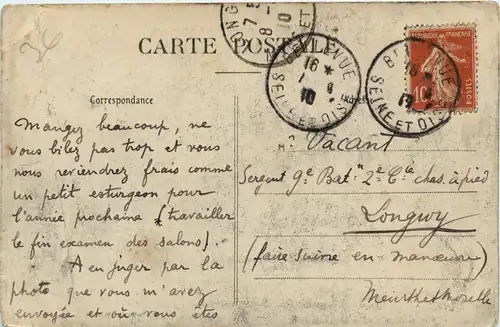 CARTE POSTALE
Correspondance
Mangez beaucoup, ne
vous bilez pas trop et vous
nous reviendrez frais comme
un petit esturgeon pour
l'année prochaine (travailler
le fin examen des salons).
A en juger par la
photo que vous m'avez
envoyée et où vous êtes
REPUBLIQUE FRANÇAISE
10
POSTES
BELLEVUE
16
10
SEINE ET OISE
BELLEVUE
SEINE ET OISE
Mr Vacant
Sergent 9e Bat^on 2e Cie chas. à pied
Longwy
(faire suivre en manœuvre)
Meurthe & Moselle